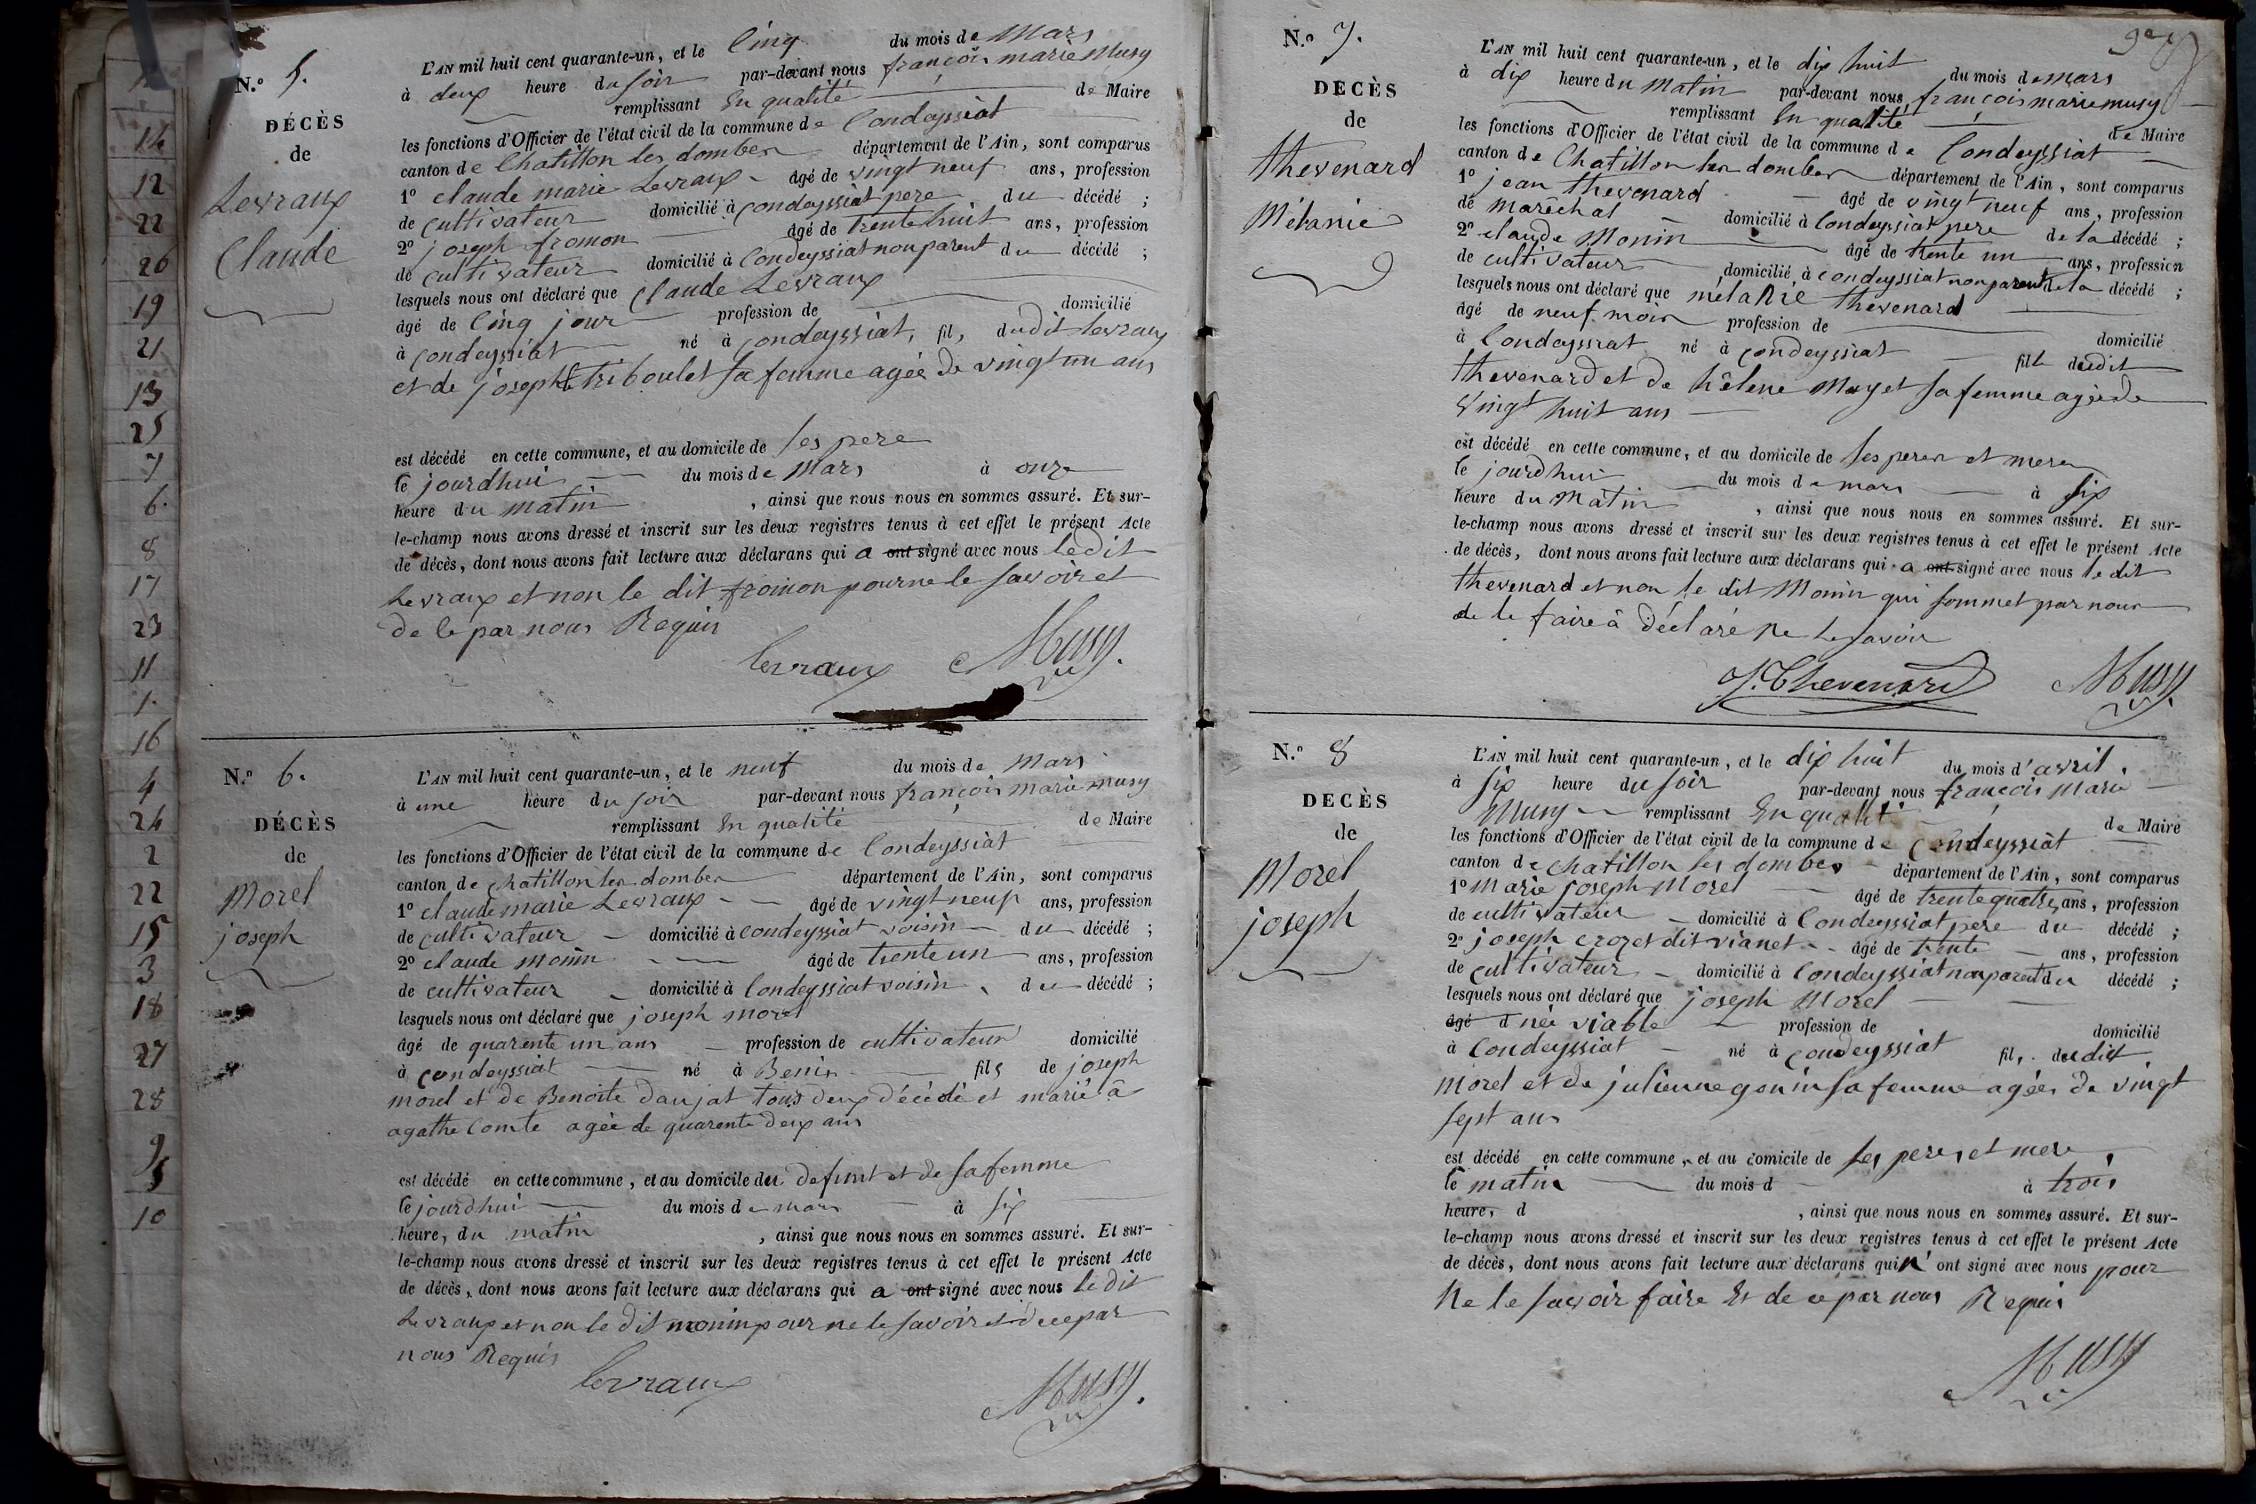 12
14
12
22
20
19
21
13
25
7
6.
8
17
23
11
1.
16
4
24
2
22
15
3
18
27
28
9
5
10
N.° 5.
DÉCÈS
de
Levraux
Claude
L'AN mil huit cent quarante-un, et le Cinq du mois de Mars
à deux heure du soir par-devant nous françois marie Musy
remplissant En qualité de Maire
les fonctions d'Officier de l'état civil de la commune de Condeyssiat
canton de Chatillon les dombes département de l'Ain, sont comparus
1° claude marie Levraux âgé de vingt neuf ans, profession
de cultivateur domicilié à condeyssiat pere du décédé ;
2° joseph fromon âgé de trente huit ans, profession
de cultivateur domicilié à Condeyssiat non parent du décédé ;
lesquels nous ont déclaré que Claude Levraux
âgé de Cinq jour profession de domicilié
à Condeyssiat né à Condeyssiat, fils dudit Levraux
et de josephte triboulet sa femme agée de vingt un ans
est décédé en cette commune, et au domicile de ses pere
le jourdhui du mois de Mars à onze
heure du matin , ainsi que nous nous en sommes assuré. Et sur-
le-champ nous avons dressé et inscrit sur les deux registres tenus à cet effet le présent Acte
de décès, dont nous avons fait lecture aux déclarans qui a ont signé avec nous ledit
Levraux et non le dit fromon pour ne le savoir et
de ce par nous Requis
Levraux Musy.
N.° 6.
DÉCÈS
de
Morel
joseph
L'AN mil huit cent quarante-un, et le neuf du mois de Mars
à une heure du soir par-devant nous françois marie musy
remplissant En qualité de Maire
les fonctions d'Officier de l'état civil de la commune de Condeyssiat
canton de chatillon les dombes département de l'Ain, sont comparus
1° claude marie Levraux âgé de vingt neuf ans, profession
de cultivateur domicilié à condeyssiat voisin du décédé ;
2° claude monin âgé de trente un ans, profession
de cultivateur domicilié à Condeyssiat voisin du décédé ;
lesquels nous ont déclaré que joseph morel
âgé de quarente un ans profession de cultivateur domicilié
à condeyssiat né à Benin fils de joseph
morel et de Benoite daujat tous deux décédé et marié à
agathe Comte agée de quarente deux ans
est décédé en cette commune, et au domicile du defunt et de sa femme
le jourdhui du mois de mars à six
heure, du matin , ainsi que nous nous en sommes assuré. Et sur-
le-champ nous avons dressé et inscrit sur les deux registres tenus à cet effet le présent Acte
de décès, dont nous avons fait lecture aux déclarans qui a ont signé avec nous le dit
Levraux et non le dit monin pour ne le savoir et de ce par
nous Requis
Levraux Musy.
N.° 7.
DECÈS
de
thevenard
Mélanie
L'AN mil huit cent quarante-un, et le dix huit du mois de mars
à dix heure du Matin par-devant nous françois marie musy
remplissant En qualité de Maire
les fonctions d'Officier de l'état civil de la commune de Condeyssiat
canton de Chatillon les dombes département de l'Ain, sont comparus
1° jean thevenard âgé de vingt neuf ans, profession
de maréchal domicilié à Condeyssiat pere de la décédé ;
2° claude Monin âgé de trente un ans, profession
de cultivateur domicilié à condeyssiat non parent de la décédé ;
lesquels nous ont déclaré que mélanie thevenard
âgé de neuf mois profession de domicilié
à Condeyssiat né à condeyssiat fille dudit
thevenard et de hélene Mayet sa femme agée de
vingt huit ans
est décédé en cette commune, et au domicile de ses peres et meres
le jourdhui du mois de mars à six
heure du Matin , ainsi que nous nous en sommes assuré. Et sur-
le-champ nous avons dressé et inscrit sur les deux registres tenus à cet effet le présent Acte
de décès, dont nous avons fait lecture aux déclarans qui a ont signé avec nous le dit
thevenard et non le dit Monin qui sommet par nous
de le faire à déclaré ne le savoir
J. Thevenard Musy.
N.° 8
DECÈS
de
Morel
joseph
L'AN mil huit cent quarante-un, et le dix huit du mois d'avril.
à six heure du soir par-devant nous françois Marie
Musy remplissant En qualité de Maire
les fonctions d'Officier de l'état civil de la commune de Condeyssiat
canton de chatillon les dombes département de l'Ain, sont comparus
1° Marie joseph Morel âgé de trente quatre ans, profession
de cultivateur domicilié à Condeyssiat pere du décédé ;
2° joseph crozet dit vianet âgé de trente ans, profession
de cultivateur domicilié à Condeyssiat non parent du décédé ;
lesquels nous ont déclaré que joseph Morel
âgé d née viable profession de domicilié
à Condeyssiat né à condeyssiat fils dudit
Morel et de julienne gonin sa femme agée de vingt
sept ans
est décédé en cette commune, et au domicile de ses peres et mere
le matin du mois d à trois
heure, d , ainsi que nous nous en sommes assuré. Et sur-
le-champ nous avons dressé et inscrit sur les deux registres tenus à cet effet le présent Acte
de décès, dont nous avons fait lecture aux déclarans qui n' ont signé avec nous pour
Ne le savoir faire Et de ce par nous Requis
Musy